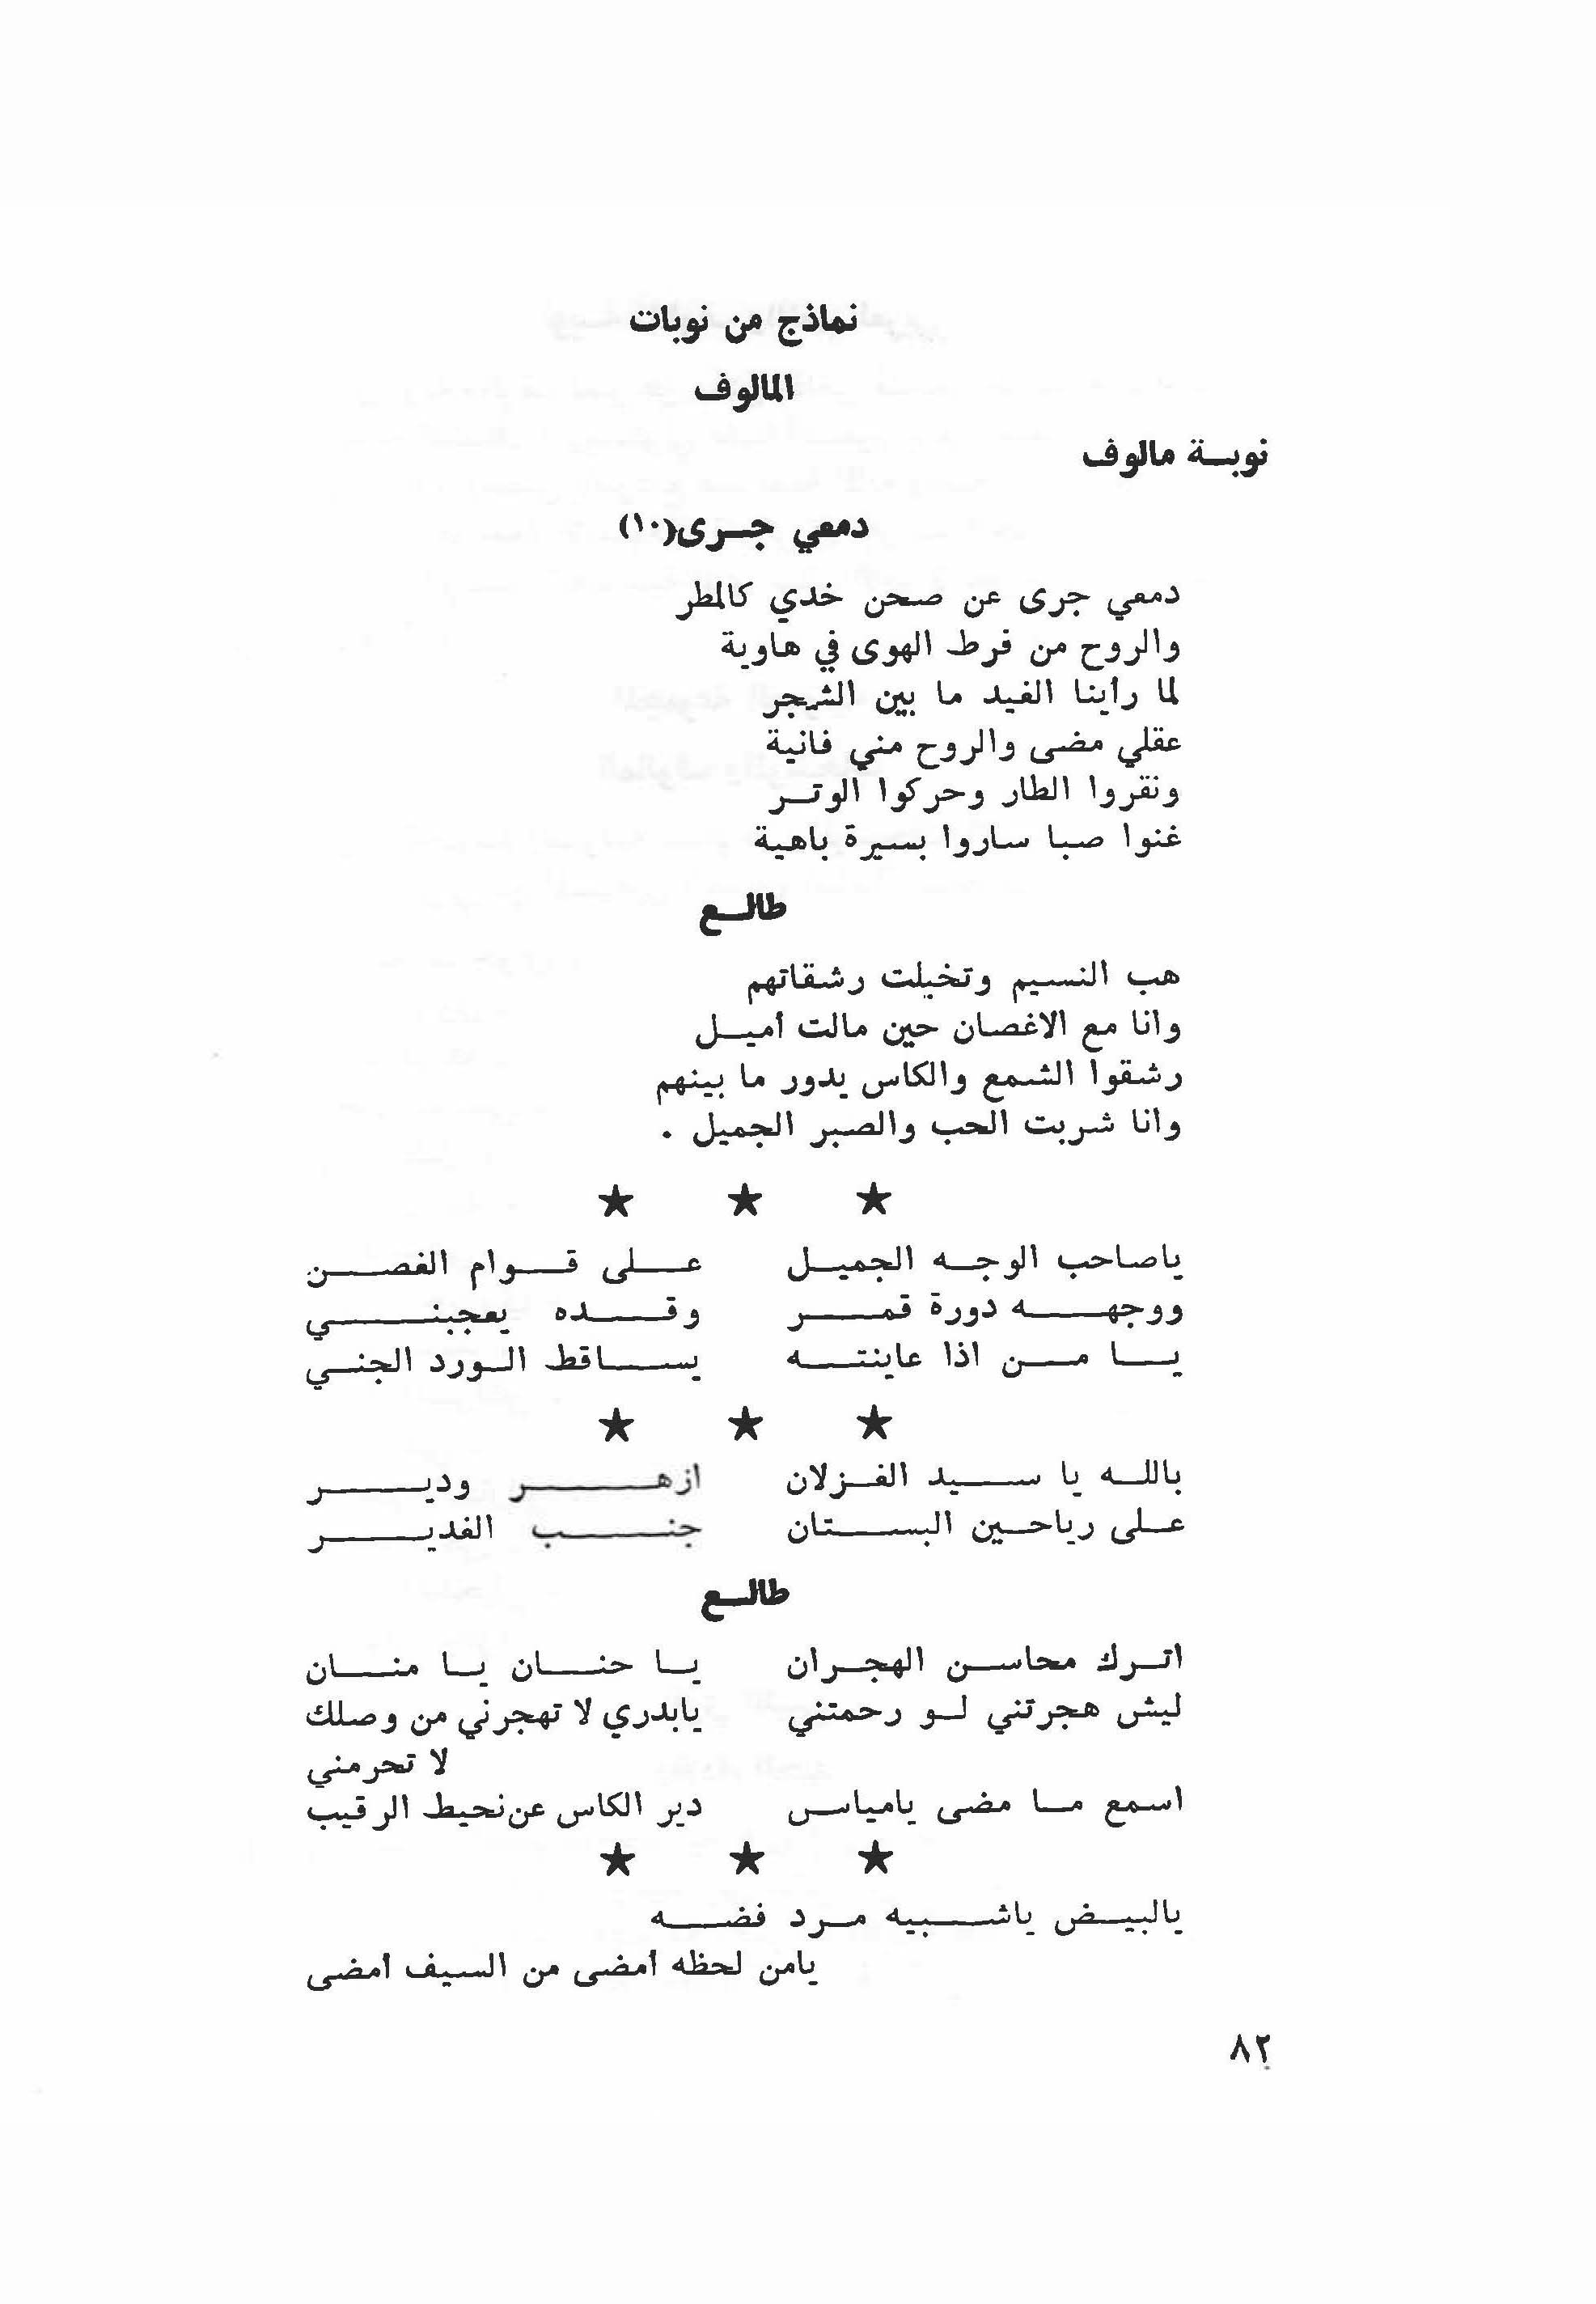 نماذج من نوبات
المالوف
نوبة مالوف
دمعي جرى(١٠)
دمعي جرى عن صحن خدي كالمطر
والروح من فرط الهوى في هاوية
لما رأينا الغيد ما بين الشجر
عقلي مضى والروح مني فانية
ونقروا الطار وحركوا الوتر
غنوا صبا ساروا بسيرة باهية
طالع
هب النسيم وتخبلت رشقاتهم
وانا مع الاغصان حين مالت أميل
رشقوا الشمع والكاس يدور ما بينهم
وانا شربت الحب والصبر الجميل .
★ ★ ★
ياصاحب الوجه الجميل على قوام الغصن
ووجهه دورة قمر وقده يعجبني
يا من اذا عاينته يساقط الورد الجني
★ ★ ★
بالله يا سيد الغزلان ازهر ودير
على رياحين البستان جنب الغدير
طالع
اترك محاسن الهجران يا حنان يا منان
ليش هجرتني لو رحمتني يابدري لا تهجرني من وصلك
لا تحرمني
اسمع ما مضى يامياس دير الكاس عن نحيط الرقيب
★ ★ ★
يالبيض ياشبيه مرد فضه
يامن لحظه أمضى من السيف أمضى
٨٢